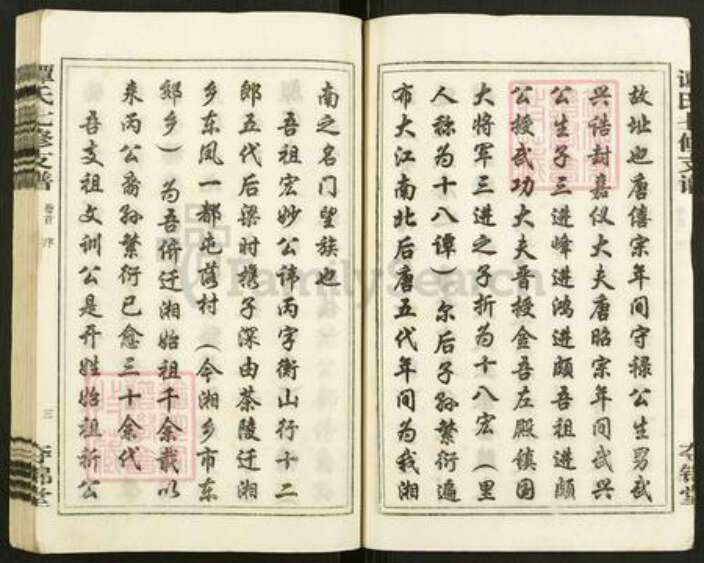 故址也唐僖宗年间守禄公生男武
兴诰封嘉仪大夫唐昭宗年间武兴
公生子三进峰进鸿进颇吾祖进颇
公授武功大夫晋授金吾左殿镇国
大将军三进之子折为十八宏（里
人称为十八谭）尔后子孙繁衍遍
布大江南北后唐五代年间为我湘
南之名门望族也
吾祖宏妙公讳丙字衡山行十二
郎五代后梁时携子深由茶陵迁湘
乡东凤一都屯荡村（今湘乡市东
郊乡）为吾侪迁湘始祖千余载以
来丙公裔孙繁衍已愈三十余代
吾支祖文训公是开姓始祖祈公
谭氏七修支谱
卷首 序
三
夺锦堂
FamilySearch